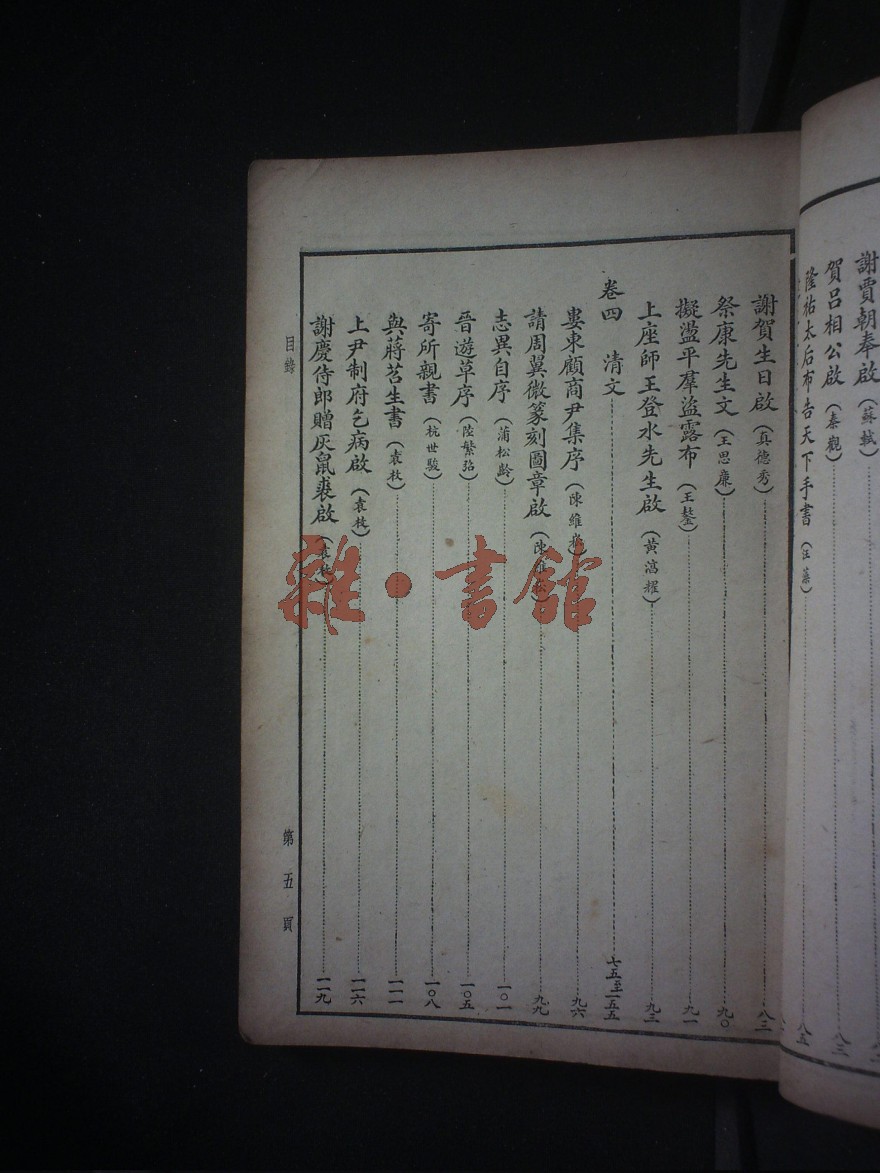 謝賈朝奉啟（蘇軾）
賀呂相公啟（秦觀）八三
隆祐太后布告天下手書（汪藻）八五
謝賀生日啟（真德秀）八三
祭康先生文（王思廉）九〇
擬盪平羣盜露布（王鏊）九一
上座師王登水先生啟（黃淳耀）九三
卷四　清文七五至一五五
婁東顧商尹集序（陳維崧）九六
請周翼微篆刻圖章啟（陳維崧）九九
志異自序（蒲松齡）一〇一
晉遊草序（陸繁弨）一〇五
寄所親書（杭世駿）一〇八
與蔣苕生書（袁枚）一一一
上尹制府乞病啟（袁枚）一一六
謝慶侍郎贈灰鼠裘啟（袁枚）一一九
目錄
第五頁
雜·書館